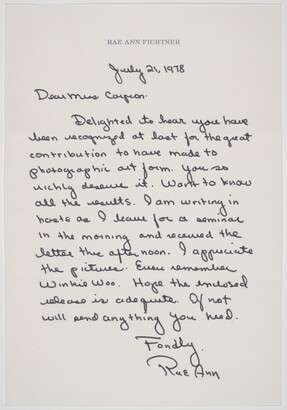 RAE ANN FICHTNER
July 21, 1978
Dear Miss Carpron.
Delighted to hear you have
been recognized at last for the great
contribution to have made to
photographic art form. You so
richly deserve it. Want to know
all the results. I am writing in
haste as I leave for a seminar
in the morning and received the
letter this afternoon. I appreciate
the pictures. Even remember
Winkie Woo. Hope the enclosed
release is adequate. If not
will send anything you need.
Fondly,
Rae Ann